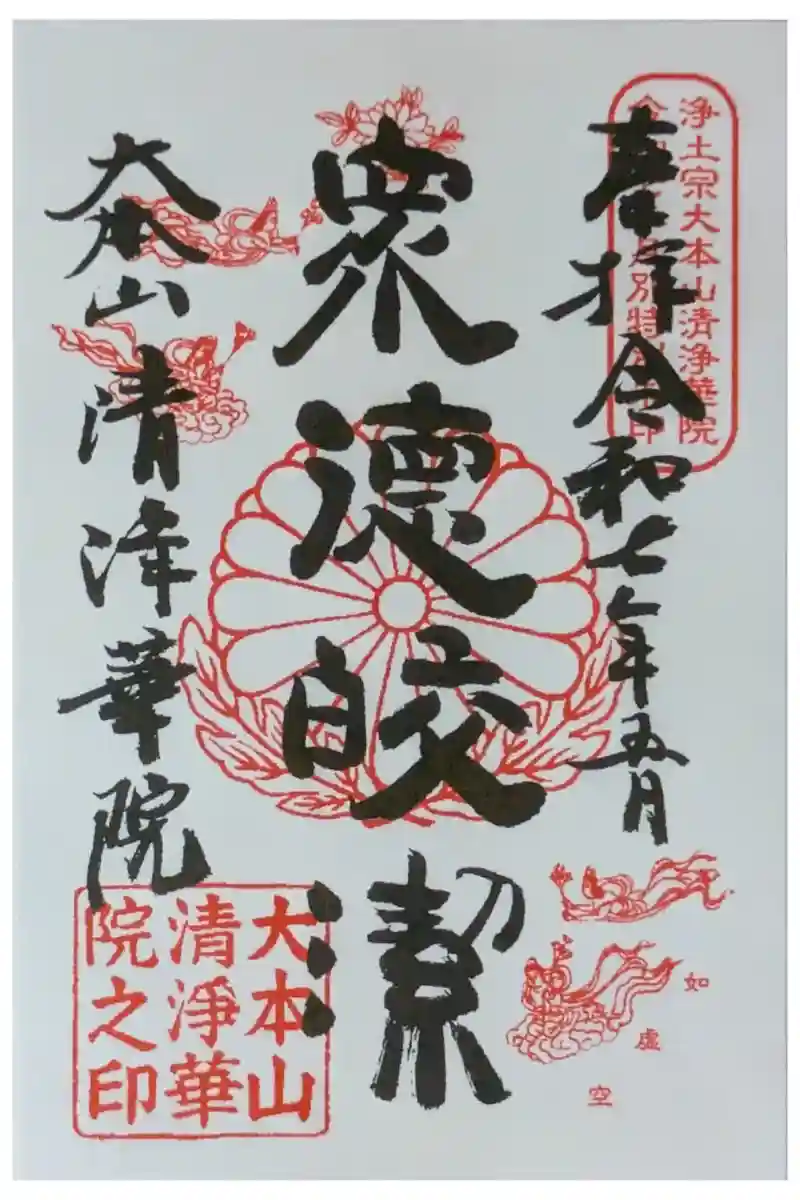 浄土宗大本山清浄華院
別特
印
奉拝 令和七年五月
衆徳皎潔
大本山 清浄華院
大本山
清浄華
院之印
如
虚
空